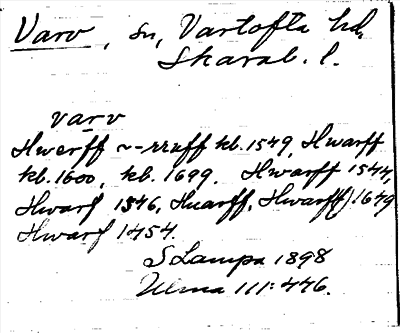 Varv, sn, Vartofta hd,
Skarab. l.
varv
Hwerff ~-rruff kb. 1549, Hwarff
kb. 1600, kb. 1699. Hwarff 1544,
Hwarf 1546, Huarff, Hwarff) 1649
Hwarf 1454.
S Lampa 1898
Ulma 111:446.